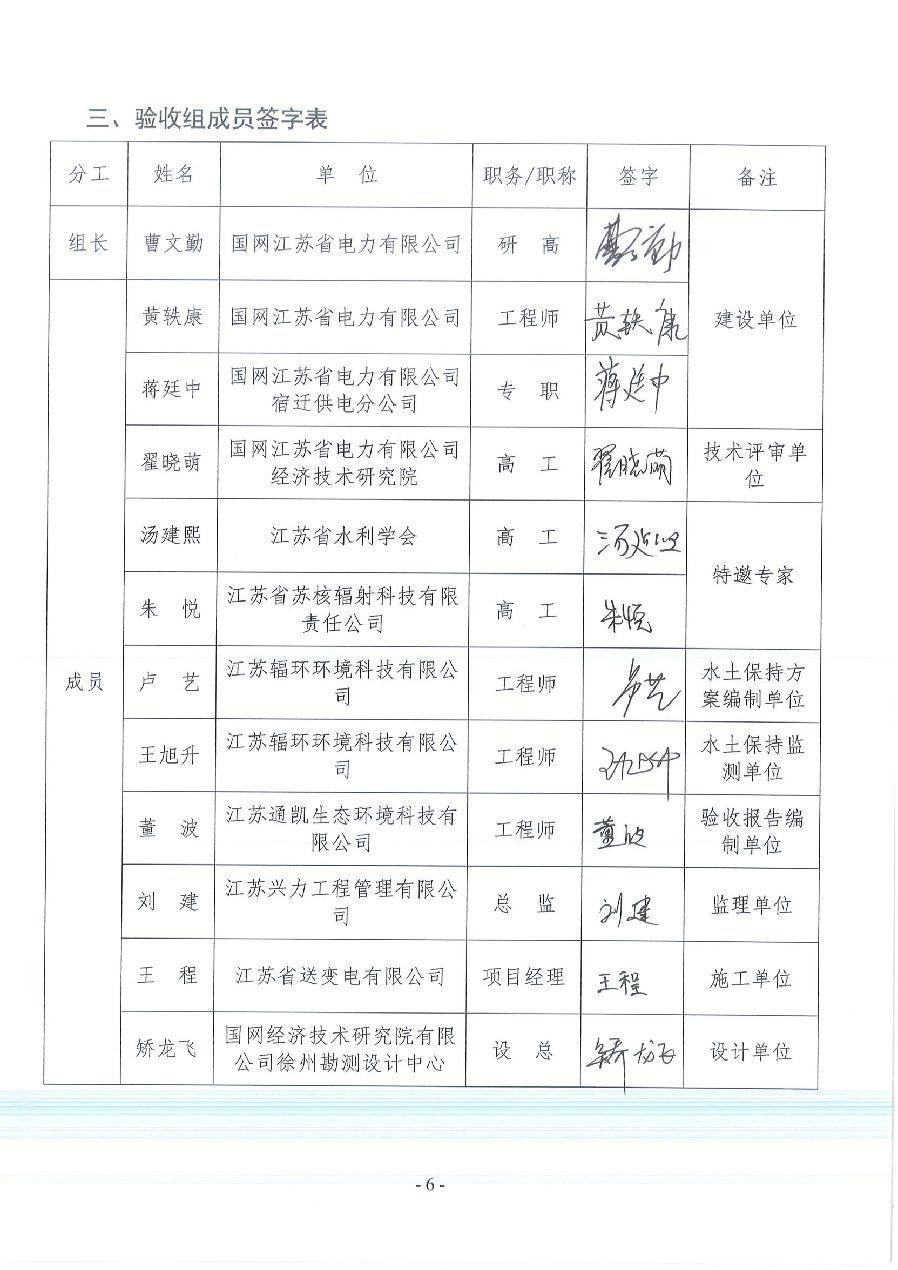 三、验收组成员签字表
分工 姓名 单 位 职务/职称 签字 备注
组长 曹文勤 国网江苏省电力有限公司 研 高 曹文勤
黄轶康 国网江苏省电力有限公司 工程师 黄轶康 建设单位
蒋廷中 国网江苏省电力有限公司
宿迁供电分公司 专 职 蒋廷中
翟晓萌 国网江苏省电力有限公司
经济技术研究院 高 工 翟晓萌 技术评审单
位
汤建熙 江苏省水利学会 高 工 汤建熙
特邀专家
朱 悦 江苏省苏核辐射科技有限
责任公司 高 工 朱悦
成员
卢 艺 江苏辐环环境科技有限公
司 工程师 卢艺 水土保持方
案编制单位
王旭升 江苏辐环环境科技有限公
司 工程师 水土保持监
测单位
董 波 江苏通凯生态环境科技有
限公司 工程师 董波 验收报告编
制单位
刘 建 江苏兴力工程管理有限公
司 总 监 刘建 监理单位
王 程 江苏省送变电有限公司 项目经理 王程 施工单位
矫龙飞 国网经济技术研究院有限
公司徐州勘测设计中心 设 总 矫龙飞 设计单位
- 6 -